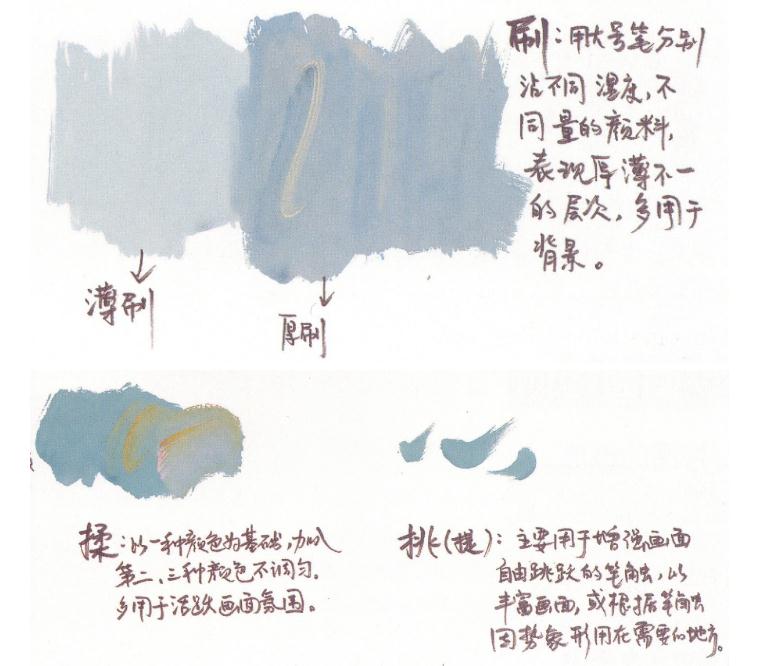 刷：用大号笔分别
沾不同湿度，不
同量的颜料，
表现厚薄不一
的层次，多用于
背景。
薄刷
厚刷
揉：以一种颜色为基础，加入
第二、三种颜色不调匀。
多用于活跃画面氛围。
挑(提)：主要用于增强画面
自由跳跃的笔触，以
丰富画面，或根据笔触
因势象形用在需要的地方。